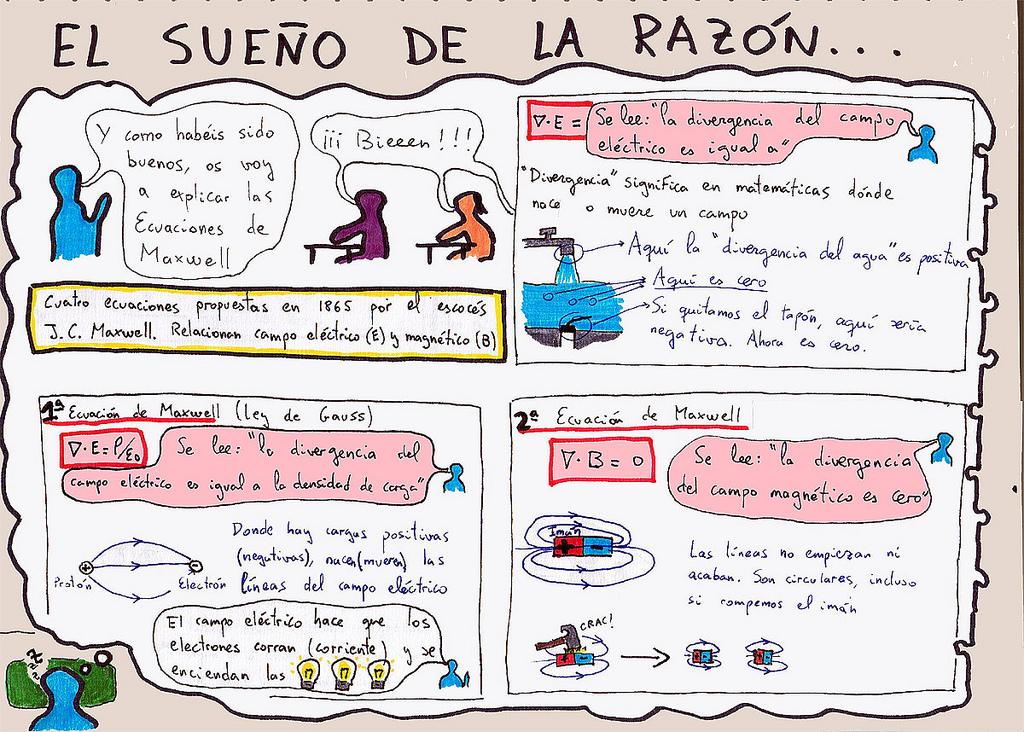 EL SUEÑO DE LA RAZÓN...
Y como habéis sido
buenos, os voy
a explicar las
Ecuaciones de
Maxwell
¡¡¡ Bieeen !!!
Cuatro ecuaciones propuestas en 1865 por el escocés
J.C. Maxwell. Relacionan campo eléctrico (E) y magnético (B)
∇·E =
Se lee: "la divergencia del campo
eléctrico es igual a"
"Divergencia" significa en matemáticas dónde
nace o muere un campo
Aquí la "divergencia del agua" es positiva
Aquí es cero
Si quitamos el tapón, aquí sería
negativa. Ahora es cero.
1ª Ecuación de Maxwell (ley de Gauss)
∇·E = ρ/ε0
Se lee: "la divergencia del
campo eléctrico es igual a la densidad de carga"
Donde hay cargas positivas
(negativas), nacen (mueren) las
líneas del campo eléctrico
+
-
Protón
Electrón
El campo eléctrico hace que los
electrones corran (corriente) y se
enciendan las
2ª Ecuación de Maxwell
∇·B = 0
Se lee: "la divergencia
del campo magnético es cero"
Imán
+ -
Las líneas no empiezan ni
acaban. Son circulares, incluso
si rompemos el imán
CRAC!
+ -
+ -
+ -
z z z